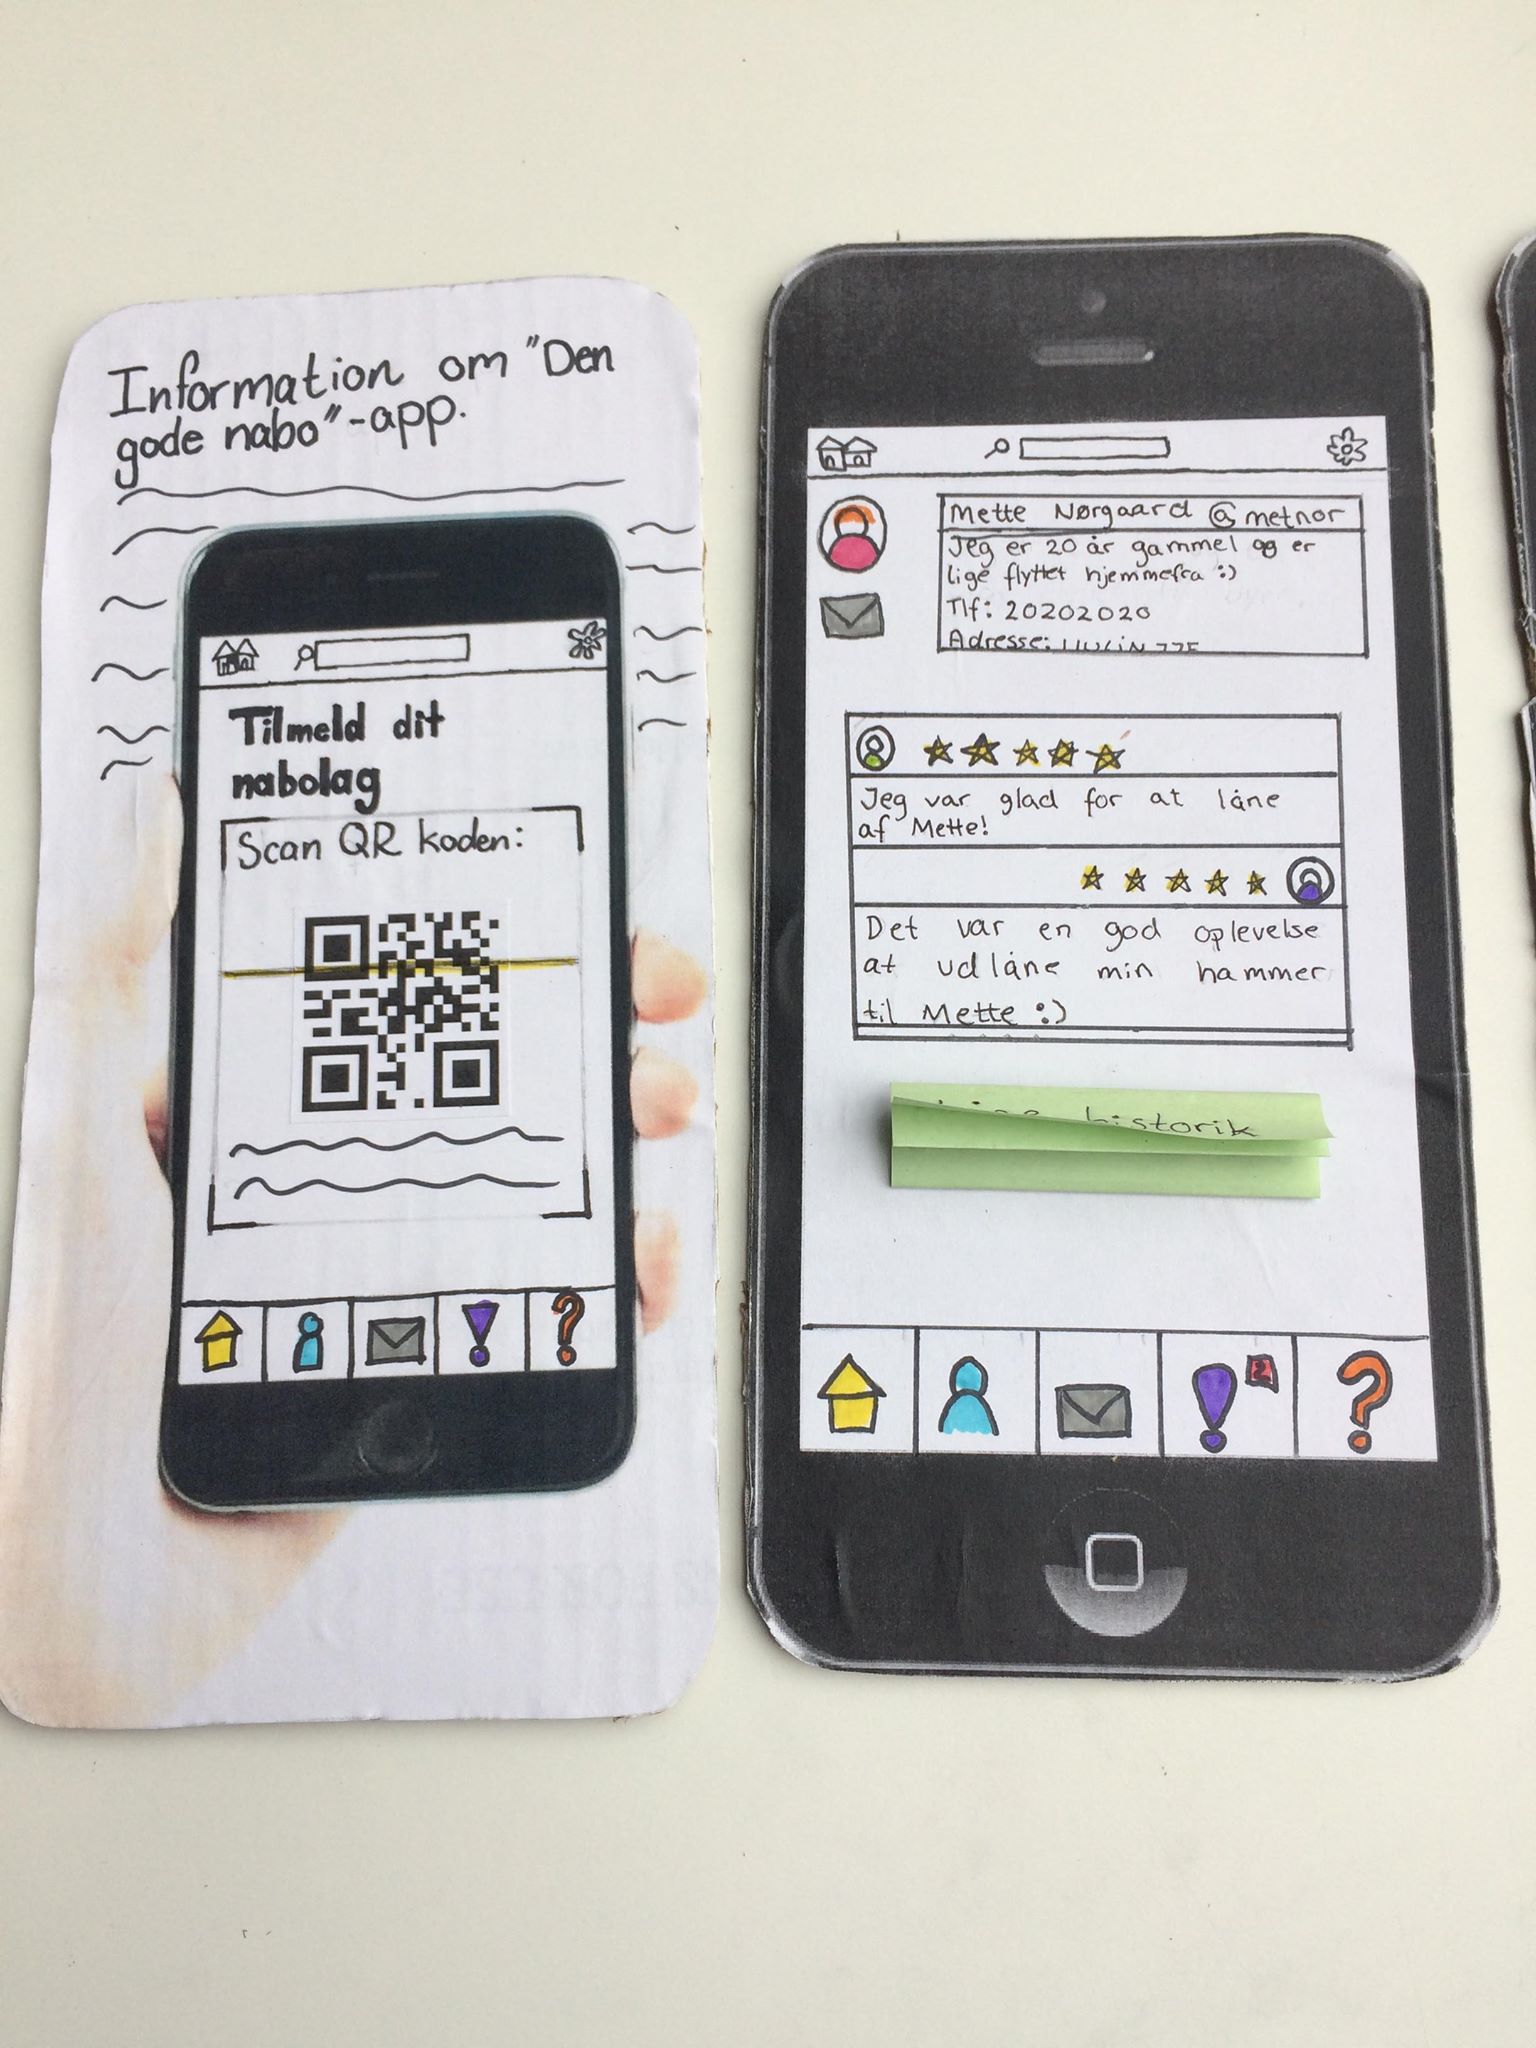 Information om "Den
gode nabo"-app.
Tilmeld dit
nabolag
Scan QR koden:
Mette Nørgaard @metnor
Jeg er 20 år gammel og er
lige flyttet hjemmefra :)
Tlf: 20202020
Adresse:
Jeg var glad for at låne
af Mette!
Det var en god oplevelse
at udlåne min hammer
til Mette :)
historik
2